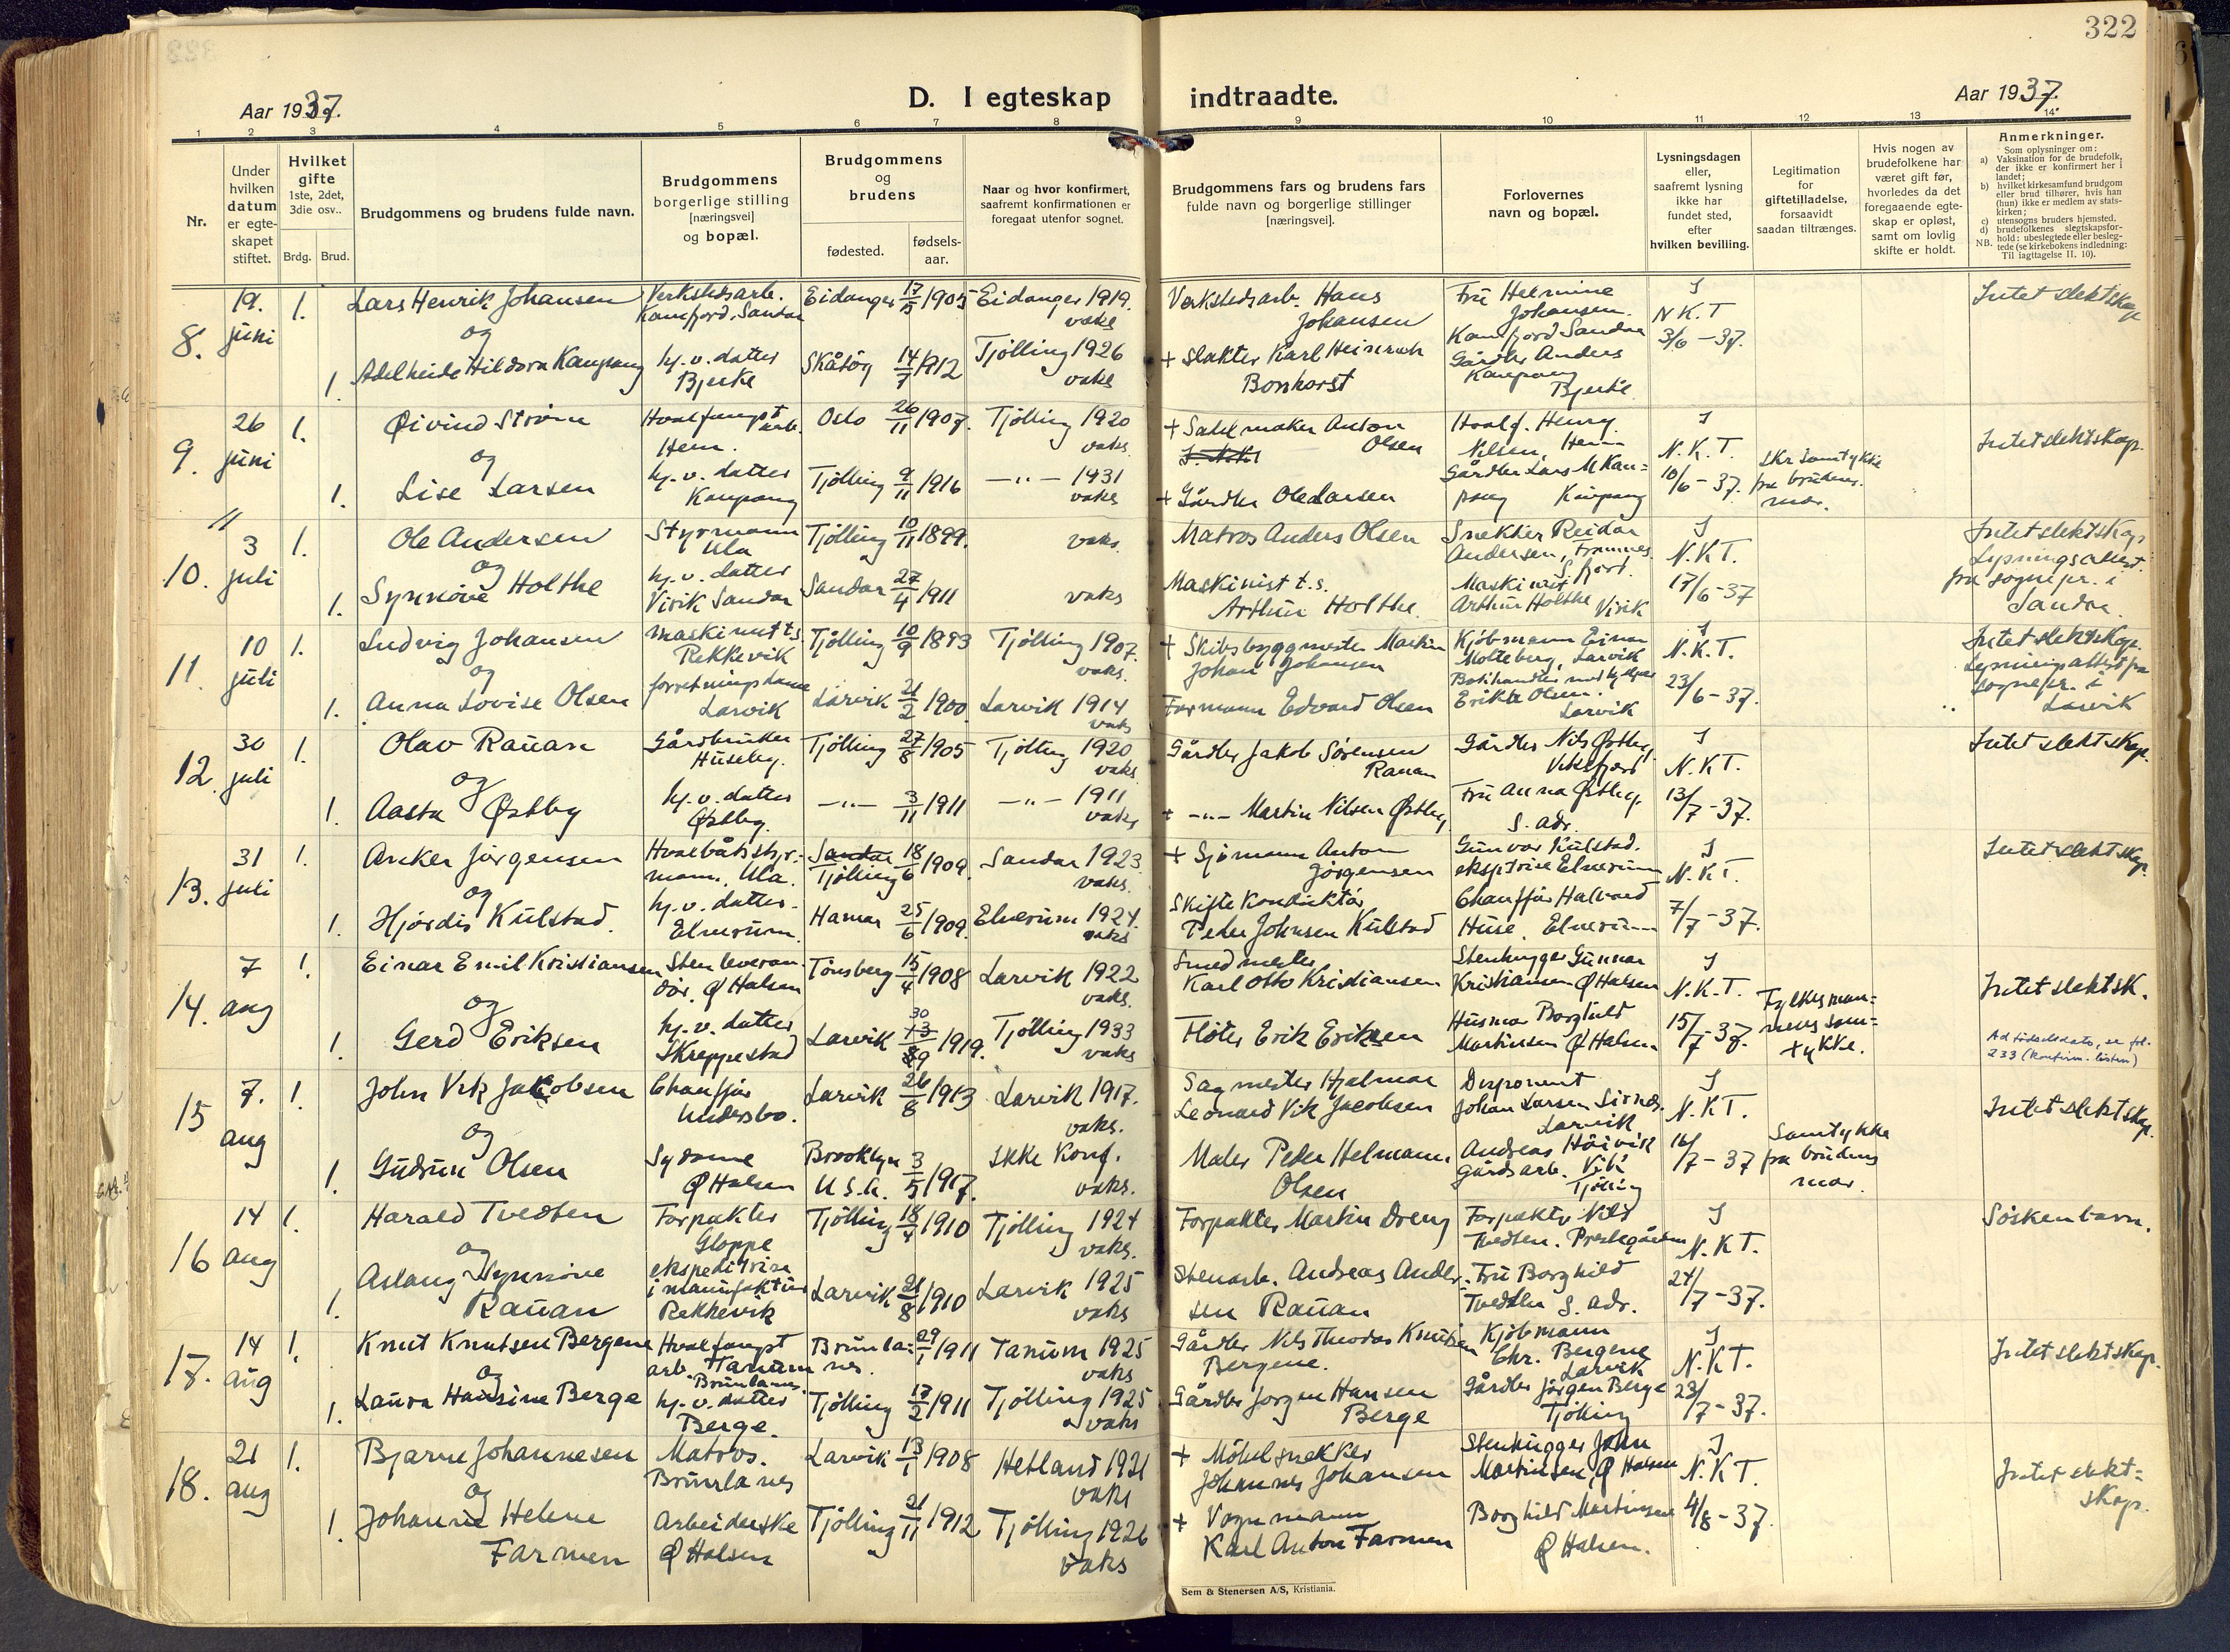 322
Aar 1937.
D. I egteskap indtraadte.
Aar 1937.
1 2 3 4 5 6 7 8 9 10 11 12 13 14
Nr.
Under hvilken datum er egte-skapet stiftet.
Hvilket gifte
1ste, 2det, 3die osv..
Brdg. Brud.
Brudgommens og brudens fulde navn.
Brudgommens borgerlige stilling [næringsvei] og bopæl.
Brudgommens og brudens
fødested.
fødsels-aar.
Naar og hvor konfirmert, saafremt konfirmationen er foregaat utenfor sognet.
Brudgommens fars og brudens fars fulde navn og borgerlige stillinger [næringsvei].
Forlovernes navn og bopæl.
Lysningsdagen eller, saafremt lysning ikke har fundet sted, efter hvilken bevilling.
Legitimation for giftetilladelse, forsaavidt saadan tiltrænges.
Hvis nogen av brudefolkene har været gift før, hvorledes da det foregaaende egte-skap er opløst, samt om lovlig skifte er holdt.
Anmerkninger.
Som oplysninger om:
a) Vaksination for de brudefolk, der ikke er konfirmert her i landet;
b) hvilket kirkesamfund brudgom eller brud tilhører, hvis han (hun) ikke er medlem av stats-kirken;
c) utensogns bruders hjemsted.
d) brudefolkenes slegtskapsfor-hold: ubeslegtede eller besleg-tede (se kirkebokens indledning:
NB. Til iagttagelse II. 10).
8. 19. juni 1. Lars Henrik Johansen Verkstedsarb. Kamfjord, Sandar Eidanger 17/5 1905 Eidanger 1919. vaks
Verkstedsarb. Hans Johansen Fru Helmine Johansen. Kamfjord Sandar I N.K.T 3/6-37. Intet slektskap
og
1. Adelheide Hildora Kaupang hj. v. datter Bjerke Skåtøy 14/7 1912 Tjølling 1926 vaks
+ Slakter Karl Heinrich Bonhorst Gårdbr Anders Kaupang Bjerke
9. 26 juni 1. Øivind Strøm Hvalfangst arb. Hem. Oslo 26/11 1907. Tjølling 1920 vaks
+ Salmaker Anton Olsen Hvalf. Henry Nilsen, Hem I N.K.T. 10/6-37. Skr samtykke fra brudens mor. Intet slektskap.
og
1. Lise Larsen hj. v. datter Kaupang Tjølling 9/11 1916 —"— 1931 vaks
+ Gårdbr Ole Larsen Gårdbr Lars M Kau=pang Kaupang
10. 3 juli 1. Ole Andersen Styrmann Ula Tjølling 10/11 1899. vaks.
Matros Anders Olsen Snekker Reidar Andersen, Framnes S.fjord. I N.K.T. 17/6-37 Intet slektskap Lysningsattest. fra sognepr. i Sandar.
og
1. Synnøve Holthe hj. v. datter Virik Sandar Sandar 27/4 1911 vaks
Maskinist t.s. Arthur Holthe Maskinist Arthur Holthe Virik
11. 10 juli 1. Ludvig Johansen maskinist t.s. Rekkevik Tjølling 10/9 1893 Tjølling 1907. vaks.
+ Skibsbyggmester Martin Johan Johansen Kjøbmann Einar Molteberg, Larvik I N.K.T. 23/6-37. Intet slektskap. Lysningsattest fra sognepr. i Larvik
og
1. Anna Lovise Olsen forretningsdame Larvik Larvik 21/2 1900 Larvik 1914 vaks
Formann Edvard Olsen Erikka Olsen. Larvik
12. 30 juli 1. Olav Rauan Gårdbruker Huseby. Tjølling 27/8 1905 Tjølling 1920 vaks
Gårdbr Jakob Sørensen Rauan Gårdbr Nils Østby, Viksfjord I N.K.T. 13/7-37. Intet slektskap.
og
1. Aasta Østby hj. v. datter Østby. —"— 3/11 1911 —"— 1911 vaks
+ —"— Martin Nilsen Østby Fru Anna Østby, S. adr.
13. 31 juli 1. Anker Jørgensen Hvalbåtstyr-mann, Ula. Sandar Tjølling 18/6 1909. Sandar 1923 vaks.
+ Sjømann Anton Jørgensen Gunvor Kulstad. ekspitrise Elverum I N.K.T. 7/7-37. Intet slektskap.
og
1. Hjørdis Kulstad. hj. v. datter. Elverum. Hamar 25/6 1909. Elverum 1924. vaks
Skiftekonduktør Peder Johnsen Kulstad Chauffør Halvard Huse, Elverum
14. 7 aug 1. Einar Emil Kristiansen Stenleveran-dør. Ø Halsen Tønsberg 15/4 1908 Larvik 1922 vaks.
Smedmester Karl Otto Kristiansen Stenhugger Gunnar Kristiansen Ø Halsen I N.K.T. 15/7-37. Fylkesman=nens sam=tykke. Intet slektsk.
og
1. Gerd Eriksen hj. v. datter Skreppestad Larvik 30 13/89 1919. Tjølling 1933 vaks
Fløter Erik Eriksen Husmor Borghild Martinsen Ø Halsen Ad fødselsdato, se fol. 233 (konfirm. listen)
15 7. aug 1. John Vik Jakobsen Chauffør Undersbo. Larvik 26/8 1913 Larvik 1917. vaks.
Sagmester Hjalmar Leonard Vik Jacobsen Disponent Johan Larsen Sirnes. Larvik I N.K.T. 16/7-37 Samtykke fra brudens mor. Intet slektskap.
og
1. Gudrun Olsen Sydame Ø Halsen Brooklyn U.S.A. 3/5 1917. Ikke konf. vaks.
Maler Peder Helmann Olsen Andreas Høivik gårdsarb. Vik Tjølling
16 14 aug 1. Harald Tvedten Forpakter Gloppe Tjølling 18/4 1910 Tjølling 1924 vaks.
Forpakter Martin Dreng Forpakter Nils Tvedten. Prestegården I N.K.T. 24/7-37. Søskenbarn.
og
1. Aslaug Synnøve Rauan ekspeditrise i manufaktur Rekkevik Larvik 21/8 1910 Larvik 1925 vaks
Stenarb. Andreas Ander-sen Rauan Fru Borghild Tvedten S. adr.
17. 14 aug 1. Knut Knutsen Bergene Hvalfangst arb. Tanum Brunlanes. Brunla=nes. 29/1 1911 Tanum 1925 vaks
Gårdbr Nils Theodor Knutsen Bergene. Kjøbmann Chr. Bergene Larvik I N.K.T. 23/7-37. Intet slektskap.
og
1. Laura Hansine Berge hj. v. datter Berge. Tjølling 17/2 1911 Tjølling 1925 vaks
Gårdbr Jørgen Hansen Berge Gårdbr Jørgen Berge Tjølling
18. 21 aug 1. Bjarne Johannesen Matros. Brunlanes Larvik 13/1 1908 Hetland 1921 vaks
+ Møbelsnekker Johannes Johansen Stenhugger John Martinsen, Ø Halsen I N.K.T. 4/8-37. Intet slekt=skap.
og
1. Johanne Helene Farmen Arbeiderske Ø Halsen Tjølling 21/11 1912 Tjølling 1926 vaks
+ Vognmann Karl Anton Farmen Borghild Martinsen Ø Halsen.
Sem & Stenersen A/S, Kristiania.